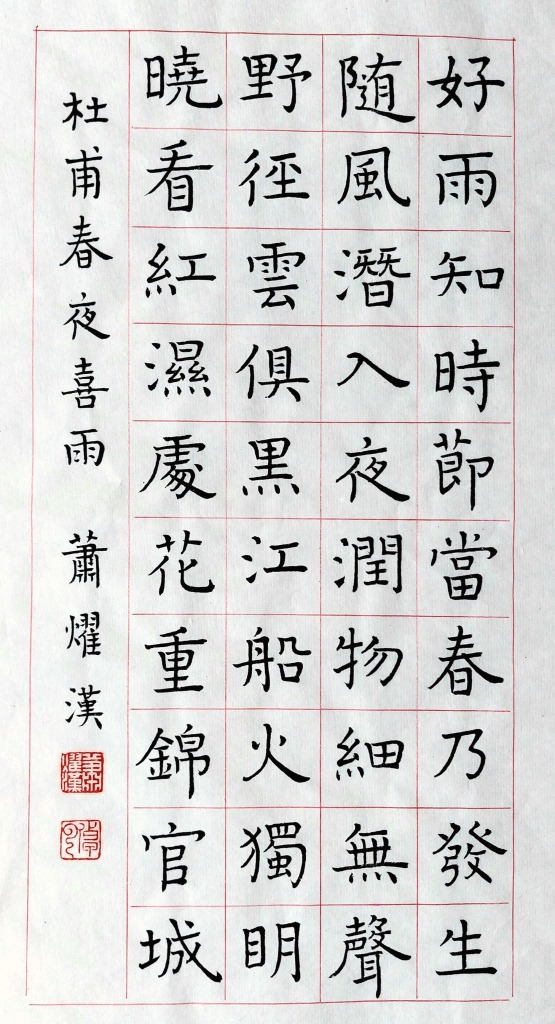 好雨知時節當春乃發生
随風潛入夜潤物細無聲
野徑雲俱黑江船火獨明
曉看紅濕處花重錦官城
杜甫春夜喜雨 蕭燿漢